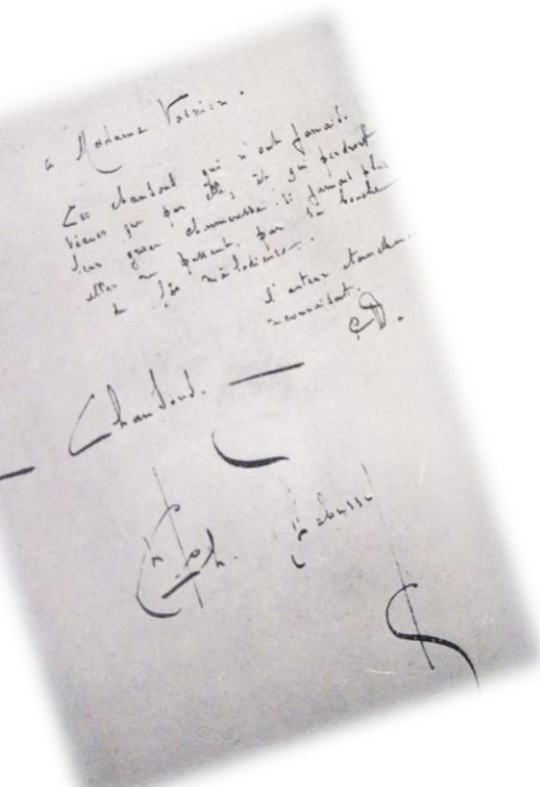 à Madame Vasnier.
Ces chansons qui n'ont jamais
vécues que par elle, et qui perdront
leur grâce charmeresse, si jamais plus
elles ne passent par sa bouche
de fée mélodieuse.
l'auteur
reconnaissant.
CD.
Chansons.
Ch. Ach. Debussy